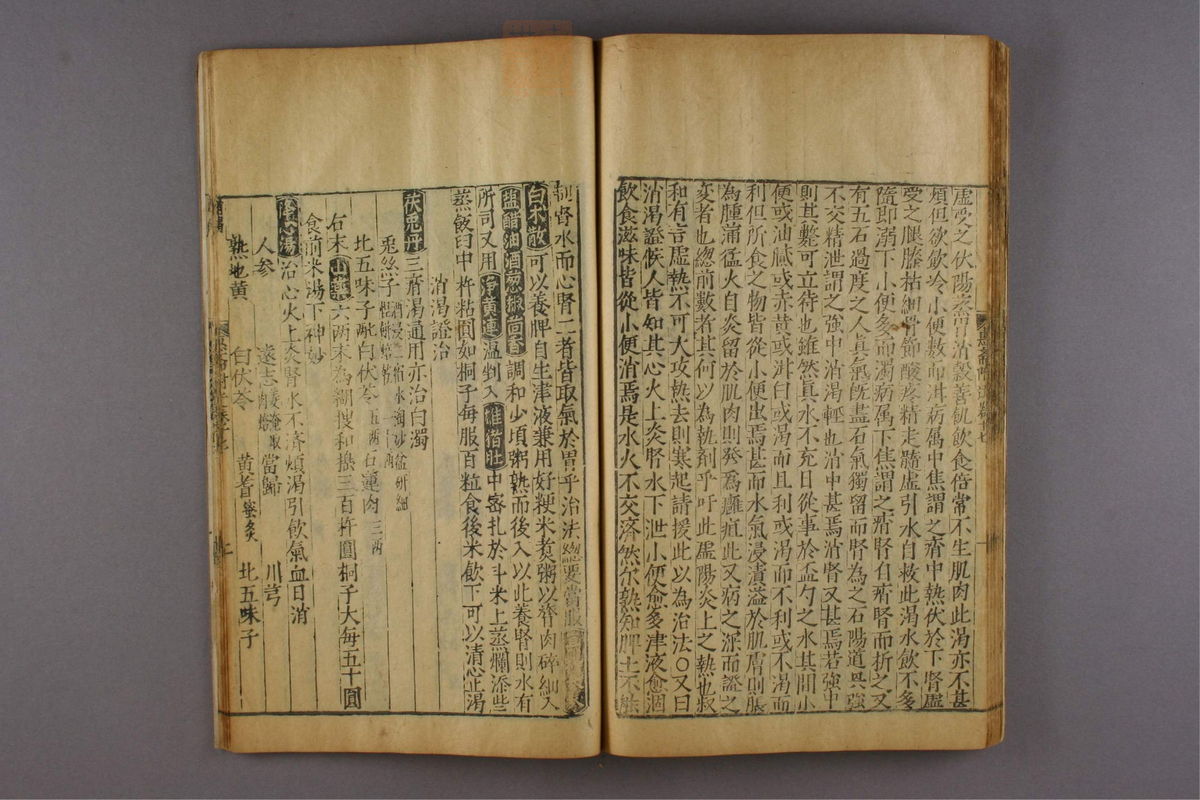 虛受之伏陽蒸胃消穀善飢飲食倍常不生肌肉此渴亦不甚
煩但欲飲冷小便數而甜病属中焦謂之痟中熱伏於下腎虛
受之腿膝枯細骨節酸疼精走髓虛引水自救此渴水飲不多
隨即溺下小便多而濁病属下焦謂之痟腎自痟腎而析之又
有五石過度之人真氣既盡石氣獨留而腎為之石陽道興強
不交精泄謂之強中消渴輕也消中甚焉消腎又甚焉若強中
則其斃可立待也雖然真水不充日從事於盃勺之水其間小
便或油膩或赤黄或泔白或渴而且利或渴而不利或不渴而
利但所食之物皆從小便出焉甚而水氣浸漬溢於肌膚則脹
為腫滿猛火自炎留於肌肉則發為癰疽此又病之深而證之
变者也總前數者其何以為執剂乎吁此虛陽炎上之熱也叔
和有言虛熱不可大攻熱去則寒起請援此以為治法○又曰
消渴證候人皆知其心火上炎腎水下泄小便愈多津液愈涸
飲食滋味皆從小便消焉是水火不交濟然尔孰知脾土不能
制腎水而心腎二者皆取氣於胃乎治法總要當服
白术散可以養脾自生津液兼用好粳米煑粥以膂肉碎細入
盐醋油酒葱椒茴香調和少頃粥熟而後入以此養腎則水有
所司又用净黄連温剉入雄猪肚中密扎於斗米上蒸爛添些
蒸飯臼中杵粘圓如桐子每服百粒食後米飲下可以清心止渴
消渴證治
茯兎丹三痟渴通用亦治白濁
兎絲子
北五味子 白伏苓五两 石蓮肉三两
右末山藥六两末為糊搜和搗三百杵圓桐子大每五十圓
食前米湯下神妙
治心火上炎腎水不濟煩渴引飲氣血日消
人参 遠志 當歸 川芎
熟地黄 白伏苓 黄蓍蜜炙 北五味子